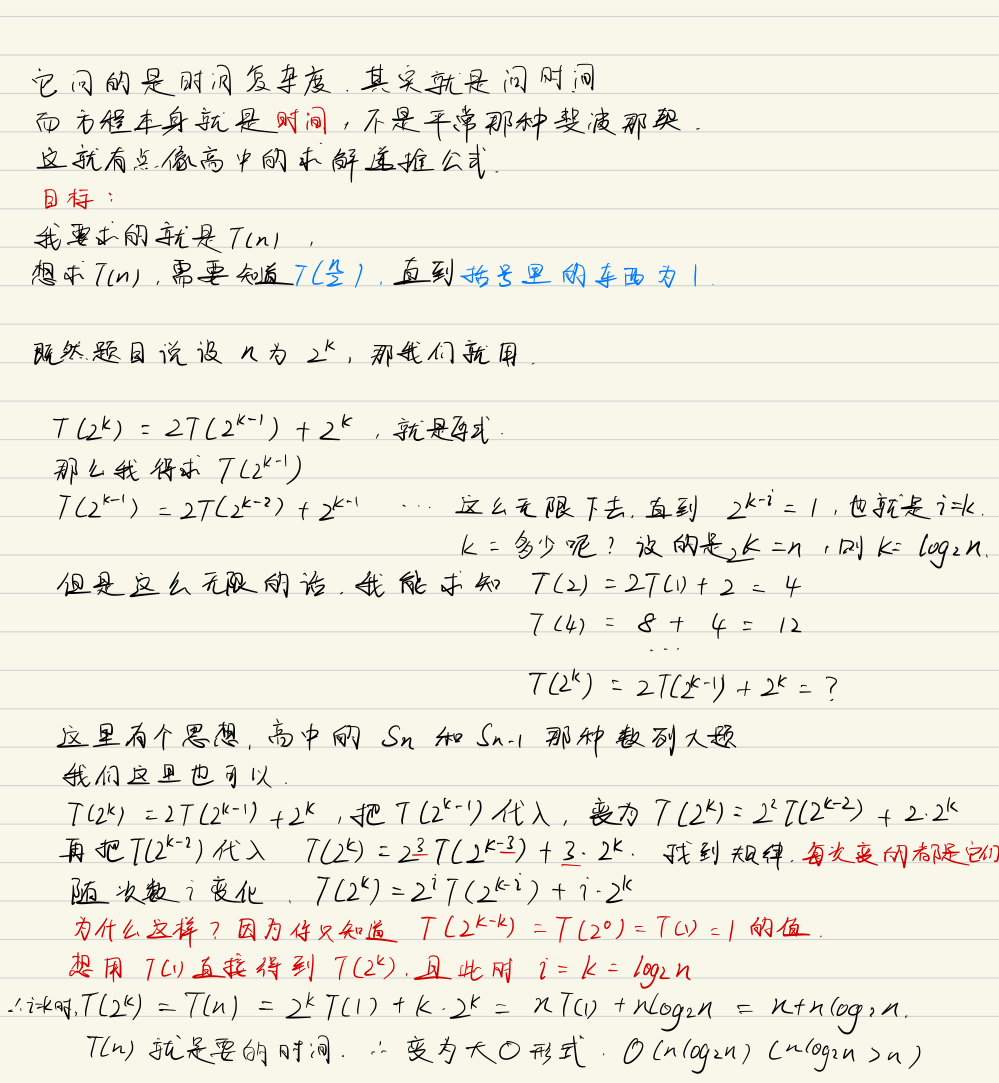 它问的是时间复杂度.其实就是问时间
而方程本身就是时间,不是平常那种斐波那契.
这就有点像高中的求解递推公式.
目标:
我要求的就是T(n),
想求T(n),需要知道T(n/2),直到括号里的东西为1.
既然题目说设n为2^k,那我们就用.
T(2^k) = 2T(2^{k-1}) + 2^k,就是原式.
那么我得求T(2^{k-1})
T(2^{k-1}) = 2T(2^{k-2}) + 2^{k-1} ... 这么无限下去.直到 2^{k-i} = 1,也就是i=k.
k = 多少呢?设的是2^k = n,则k = log₂n.
但是这么无限的话.我能求知 T(2) = 2T(1) + 2 = 4
T(4) = 8 + 4 = 12
...
T(2^k) = 2T(2^{k-1}) + 2^k = ?
这里有个思想,高中的 Sn 和 Sn-1 那种数列大题
我们这里也可以.
T(2^k) = 2T(2^{k-1}) + 2^k,把T(2^{k-1})代入,变为T(2^k) = 2²T(2^{k-2}) + 2·2^k
再把T(2^{k-2})代入 T(2^k) = 2³T(2^{k-3}) + 3·2^k. 找到规律.每次变的都是它们
随次数i变化. T(2^k) = 2^i T(2^{k-i}) + i·2^k
为什么这样?因为你只知道 T(2^{k-k}) = T(2⁰) = T(1) = 1 的值.
想用T(1)直接得到T(2^k).且此时 i = k = log₂n
∴i=k时,T(2^k) = T(n) = 2^k T(1) + k·2^k = nT(1) + nlog₂n = n+nlog₂n.
T(n)就是要的时间.∴变为大O形式. O(nlog₂n) (nlog₂n > n)